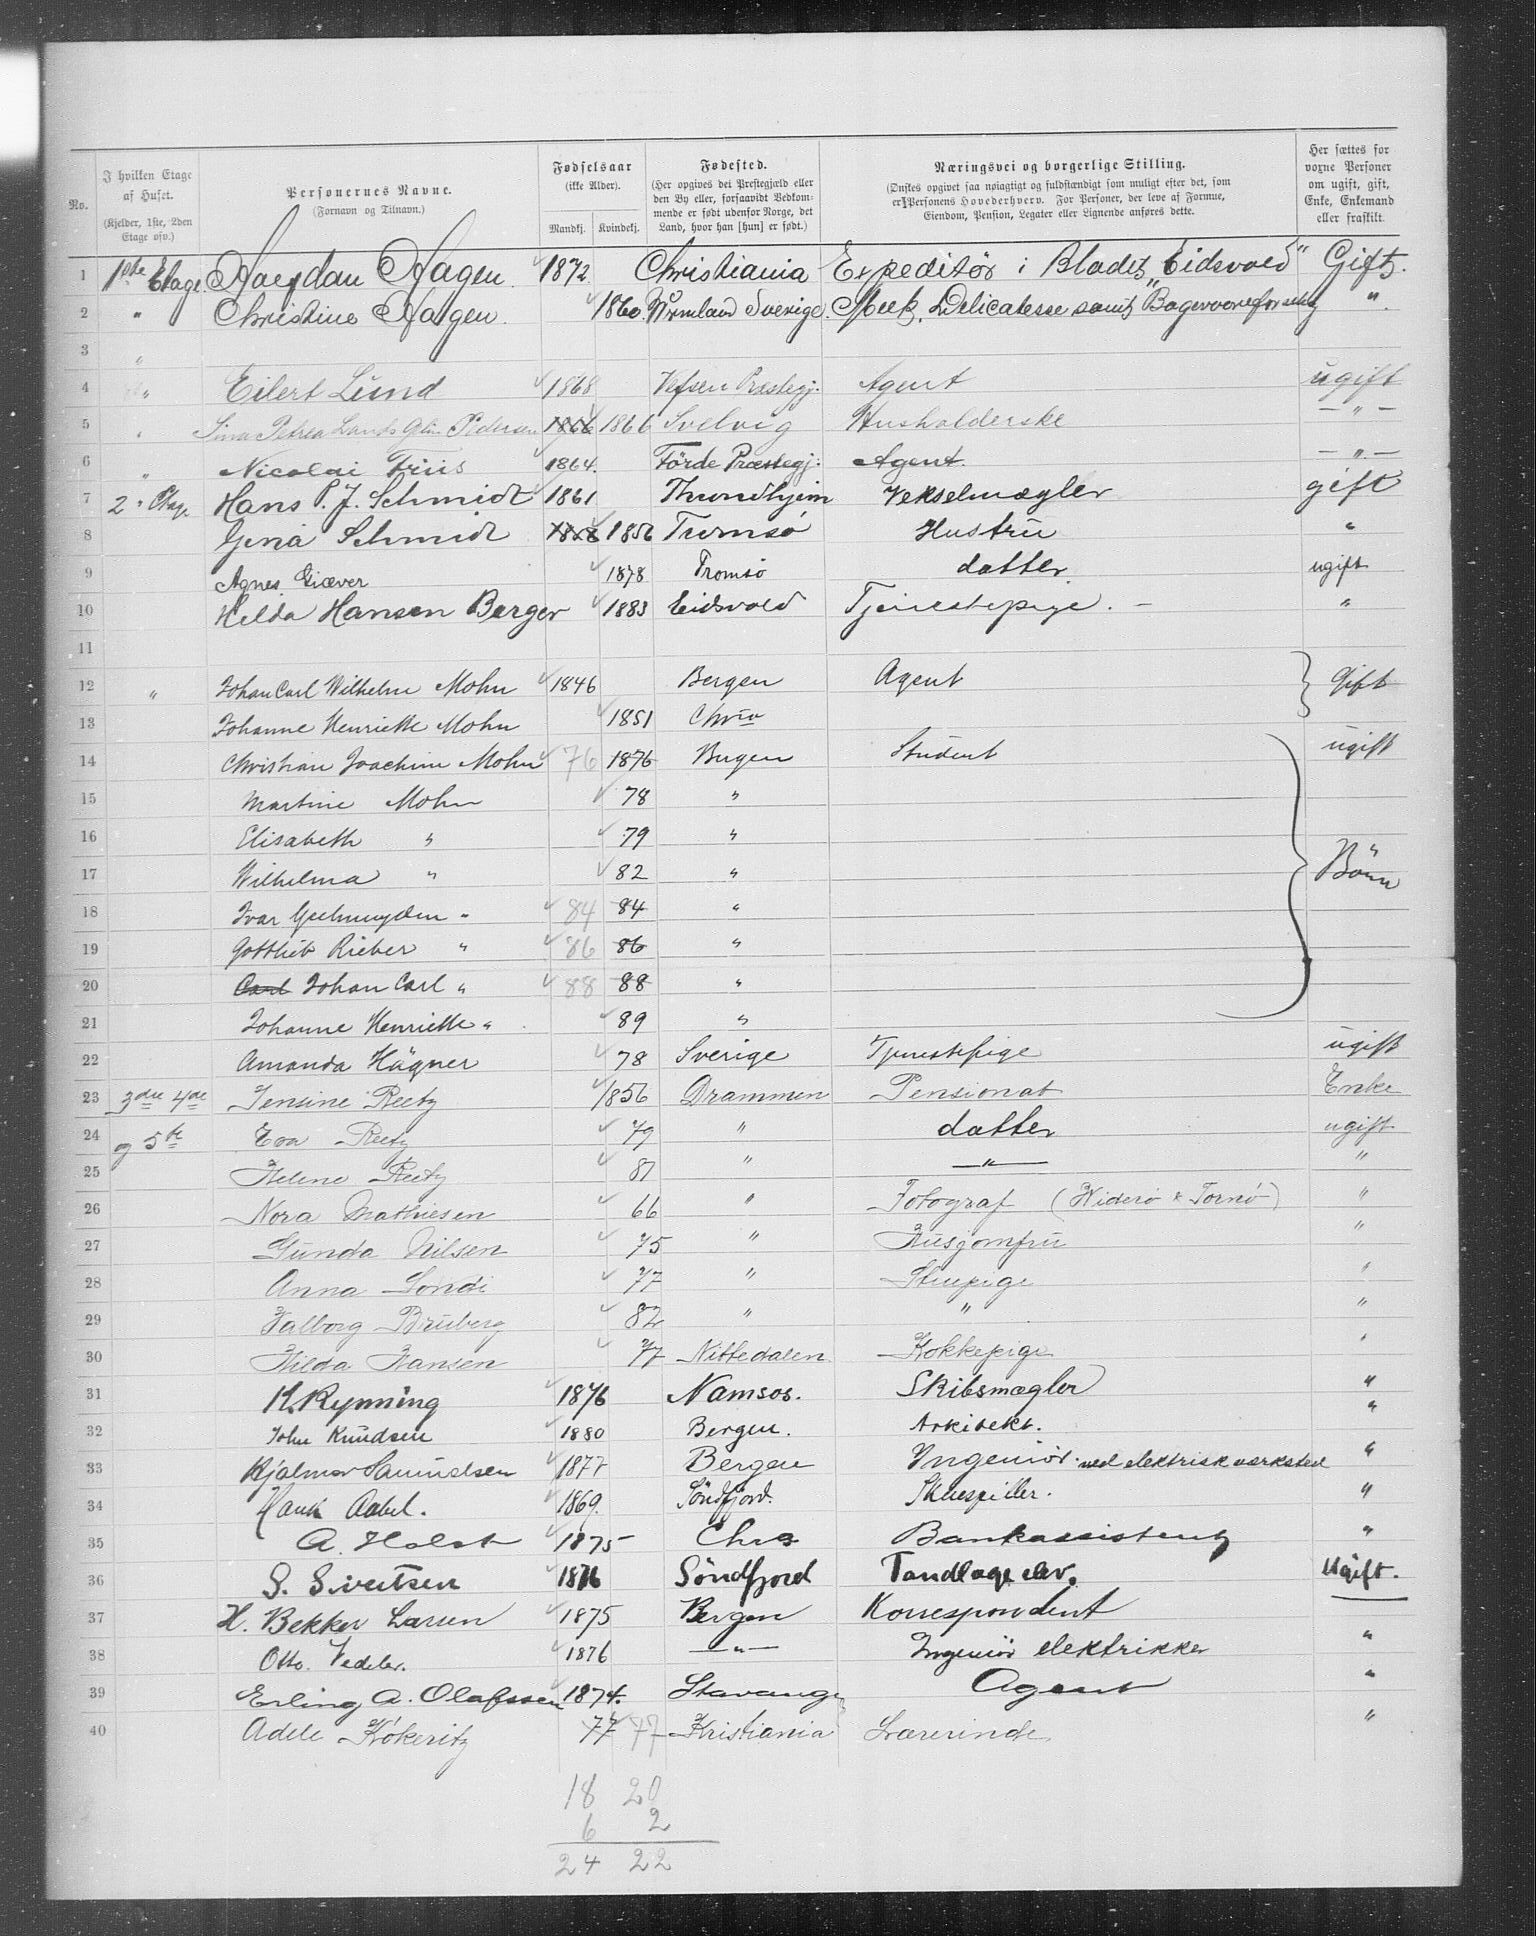 No.
I hvilken Etage af Huset. (Kjelder, 1ste, 2den Etage osv.)
Personernes Navne. (Fornavn og Tilnavn.)
Fødselsaar (ikke Alder). Mandkj. Kvindekj.
Fødested. (Her opgives det Prestegjæld eller den By eller, forsaavidt Vedkommende er født udenfor Norge, det Land, hvor han [hun] er født.)
Næringsvei og borgerlige Stilling. (Ønskes opgivet saa nøiagtigt og fuldstændigt som muligt efter det, som er Personens Hovederhverv. For Personer, der leve af Formue, Eiendom, Pension, Legater eller Lignende anføres dette.
Her sættes for voxne Personer om ugift, gift, Enke, Enkemand eller fraskilt.
1 1ste Etage Hagen 1872 Christiania Expeditör i Bladet „Eidsvold" Gift.
2 " Christine Hagen. 1860. Sverige. Melk, Delicatesse samt "
3 "
4 " Eilert Lund 1868 Vefsen Præstegj. Agent ugift
5 " Pedersen 1866 1866 Svelvig Husholderske — " —
6 " Nicolai Friis 1864. Förde Præstegj: Agent. — " —
7 2 " Etage Hans P. J. Schmidt 1861 Throndhjem Vekselmægler gift
8 Gina Schmidt 1858 1856 Tromsö Hustru "
9 Agnes Giæver 1878 Tromsö datter ugift
10 Helda Hansen Berger 1883 Eidsvold Tjenestepige. — "
11
12 " Johan Carl Wilhelm Mohn 1846 Bergen Agent Gift
13 Johanne Henriette Mohn 1851 Chria
14 Christian Joachim Mohn 76 1876 Bergen Student ugift
15 Martine Mohn 78 "
16 Elisabeth " 79 "
17 Wilhelma " 82 " Börn
18 Ivar Geelmuyden " 84 84 "
19 Gottlieb Rieber " 86 86 "
20 Carl Johan Carl " 88 88 "
21 Johanne Henriette " 89 "
22 Amanda Hägner 78 Sverige Tjenestepige ugift
23 3die 4de Jensine Reetz 1856 Drammen Pensionat Enke
24 og 5te Eva Reetz 79 " datter ugift
25 Helene Reetz 81 " — " — "
26 Nora Mathiesen 66 " Fotograf (Widerö & Tornö) "
27 Gunda Nilsen 75 " Husjomfru "
28 Anna 77 " Stuepige "
29 Valborg Bruberg 82 " " "
30 Hilda Hansen 77 Nittedalen Kokkepige "
31 K. Rynning 1876 Namsos. Skibsmægler "
32 John Knudsen 1880 Bergen. Arkitekt. "
33 Hjalmar Samuelsen 1877 Bergen Ingeniör ved elektrisk værksted "
34 Hauk Aabel. 1869. Söndfjord. Skuespiller. "
35 A. Holst 1875 Chra Bankassistent "
36 S. Sivertsen 1876 Söndfjord Tandlæge elev. Ugift.
37 H. Bekker Larsen 1875 Bergen Korrespondent
38 Otto Vedeler. 1876 — " — Ingeniör elektrikker "
39 Erling A. Olafssen 1874. Stavanger Agent "
40 Adele Kökeritz 77 77 Kristiania Lærerinde "
18 20
6 2
24 22